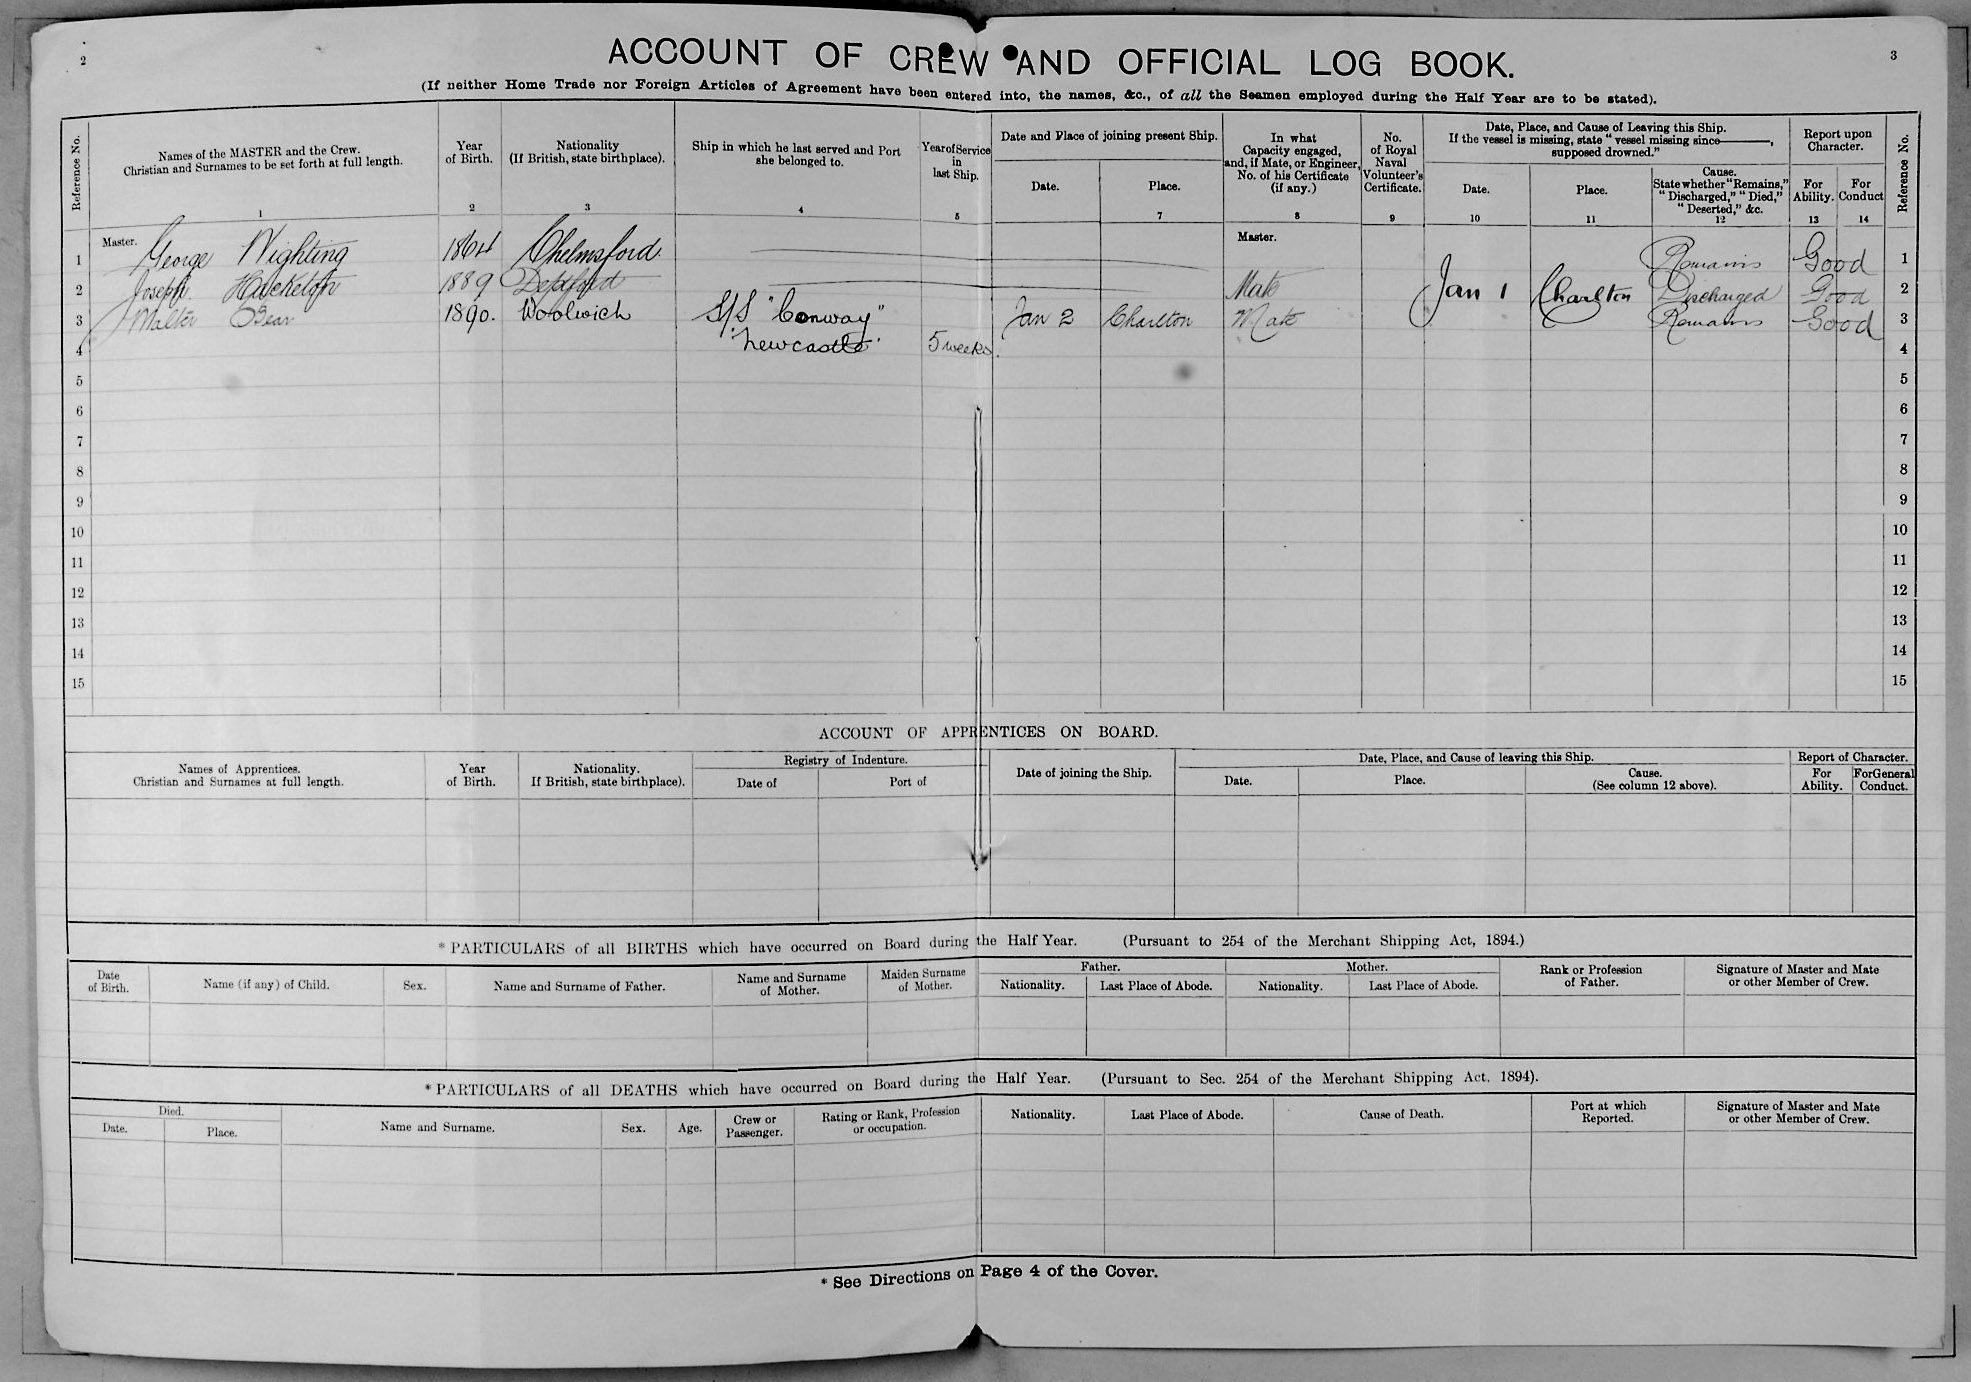 2
3
ACCOUNT OF CREW AND OFFICIAL LOG BOOK.
(If neither Home Trade nor Foreign Articles of Agreement have been entered into, the names, &c., of all the Seamen employed during the Half Year are to be stated).
Reference No.
Names of the MASTER and the Crew.
Christian and Surnames to be set forth at full length.
1
Year
of Birth.
2
Nationality
(If British, state birthplace).
3
Ship in which he last served and Port
she belonged to.
4
Year of Service
in
last Ship.
5
Date and Place of joining present Ship.
Date.
Place.
7
In what
Capacity engaged,
and, if Mate, or Engineer,
No. of his Certificate
(if any.)
8
No.
of Royal
Naval
Volunteer's
Certificate.
9
Date, Place, and Cause of Leaving this Ship.
If the vessel is missing, state "vessel missing since———,
supposed drowned."
Date.
10
Place.
11
Cause.
State whether "Remains,"
"Discharged," "Died,"
"Deserted," &c.
12
Report upon
Character.
For
Ability.
13
For
Conduct
14
Reference No.
1 Master. George Nighting 1864 Chelmsford. Master. Remains Good 1
2 Joseph 1889 Deptford Mate Jan 1 Charlton Discharged Good 2
3 Walter Bear 1890. Woolwich S/S "Conway" Jan 2 Charlton Mate Remains Good 3
4 Newcastle 5 weeks. 4
5 5
6 6
7 7
8 8
9 9
10 10
11 11
12 12
13 13
14 14
15 15
ACCOUNT OF APPRENTICES ON BOARD.
Names of Apprentices.
Christian and Surnames at full length.
Year
of Birth.
Nationality.
If British, state birthplace).
Registry of Indenture.
Date of
Port of
Date of joining the Ship.
Date, Place, and Cause of leaving this Ship.
Date.
Place.
Cause.
(See column 12 above).
Report of Character.
For
Ability.
For General
Conduct.
* PARTICULARS of all BIRTHS which have occurred on Board during the Half Year. (Pursuant to 254 of the Merchant Shipping Act, 1894.)
Date
of Birth.
Name (if any) of Child.
Sex.
Name and Surname of Father.
Name and Surname
of Mother.
Maiden Surname
of Mother.
Father.
Nationality.
Last Place of Abode.
Mother.
Nationality.
Last Place of Abode.
Rank or Profession
of Father.
Signature of Master and Mate
or other Member of Crew.
* PARTICULARS of all DEATHS which have occurred on Board during the Half Year. (Pursuant to Sec. 254 of the Merchant Shipping Act. 1894).
Died.
Date.
Place.
Name and Surname.
Sex.
Age.
Crew or
Passenger.
Rating or Rank, Profession
or occupation.
Nationality.
Last Place of Abode.
Cause of Death.
Port at which
Reported.
Signature of Master and Mate
or other Member of Crew.
* See Directions on Page 4 of the Cover.